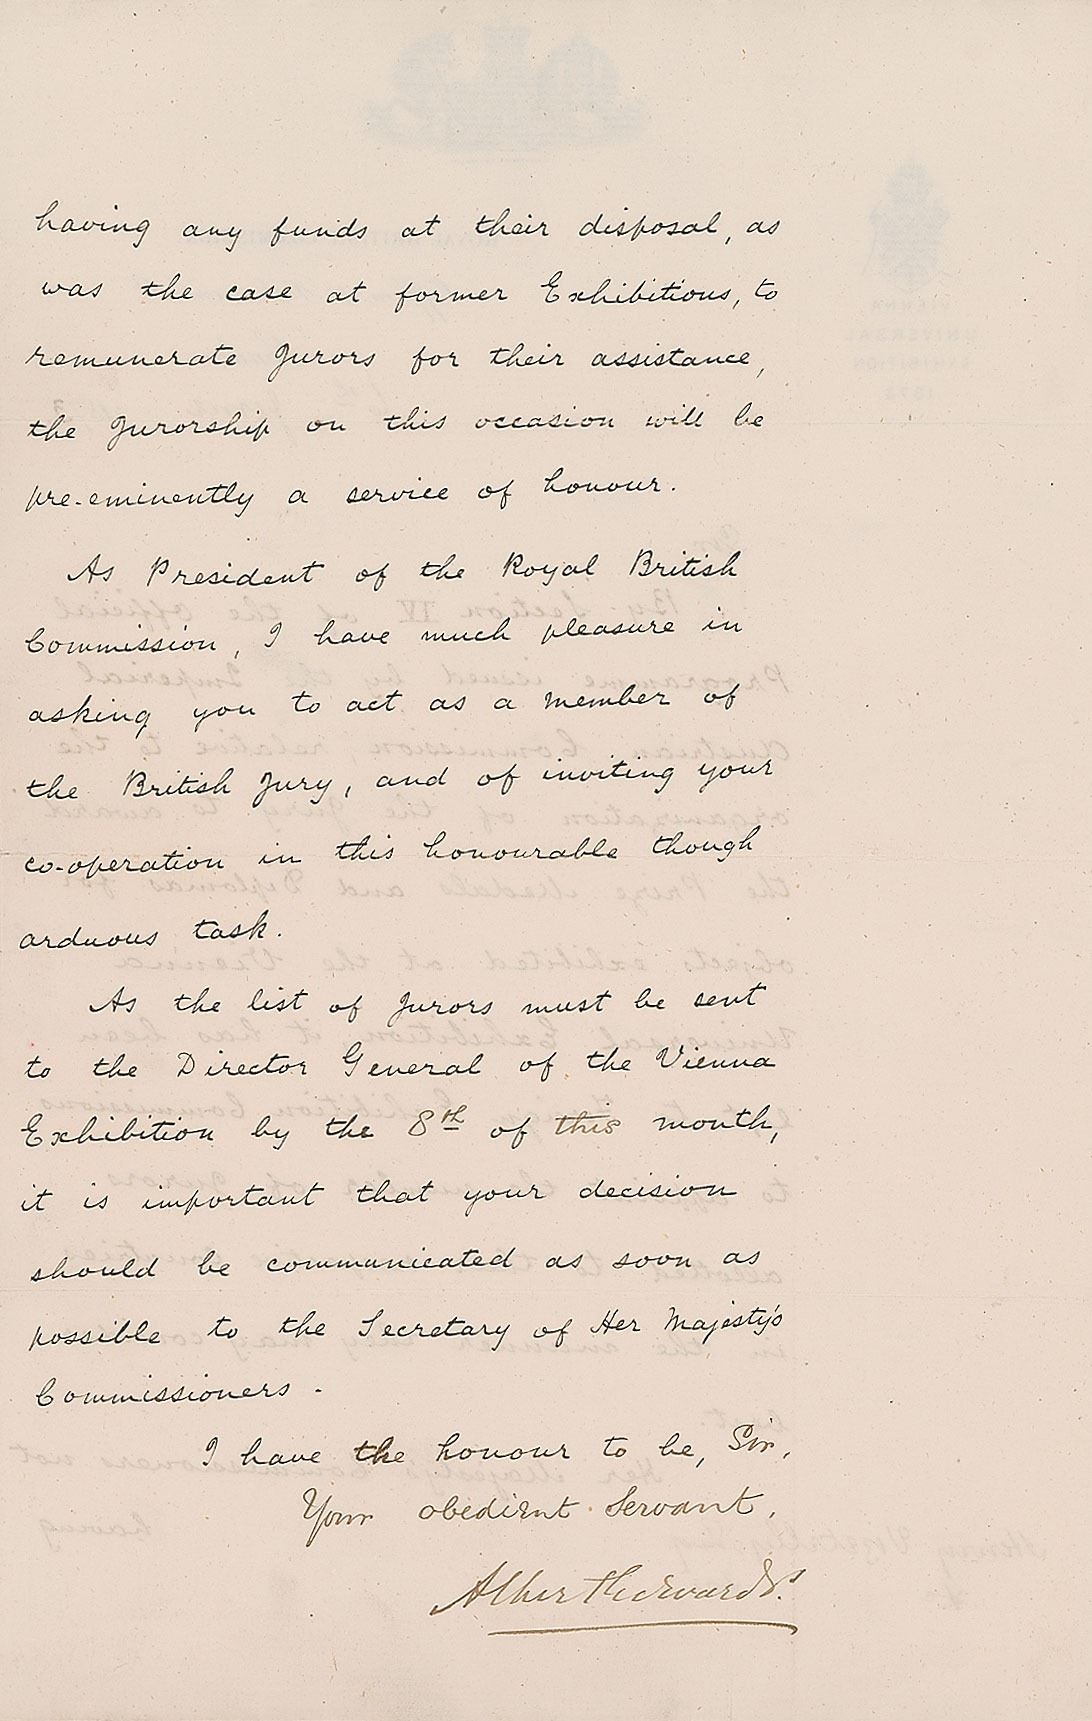 having any funds at their disposal, as
was the case at former Exhibitions, to
remunerate Jurors for their assistance,
the Jurorship on this occasion will be
pre-eminently a service of honour.
As President of the Royal British
Commission, I have much pleasure in
asking you to act as a member of
the British Jury, and of inviting your
co-operation in this honourable though
arduous task.
As the list of Jurors must be sent
to the Director General of the Vienna
Exhibition by the 8th of this month,
it is important that your decision
should be communicated as soon as
possible to the Secretary of Her Majesty's
Commissioners.
I have the honour to be, Sir,
Your obedient Servant,
Albert Edward P.